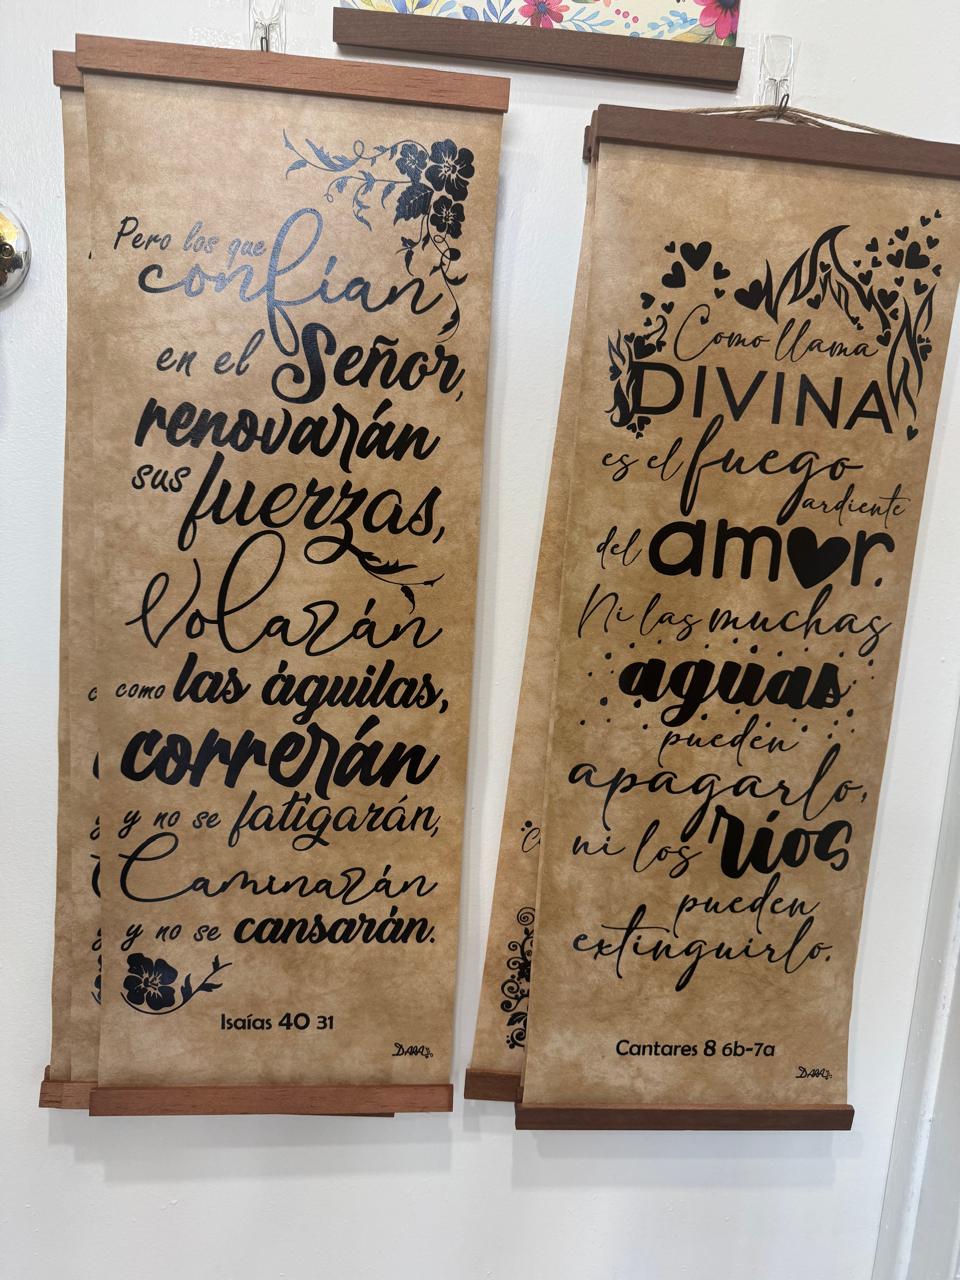 Pero los que
confían
en el Señor,
renovarán
sus fuerzas,
Volarán
como las águilas,
correrán
y no se fatigarán,
Caminarán
y no se cansarán.
Isaías 40 31
Como llama
DIVINA
es el fuego
ardiente
del amor.
Ni las muchas
aguas
pueden
apagarlo,
ni los ríos
pueden
extinguirlo.
Cantares 8 6b-7a